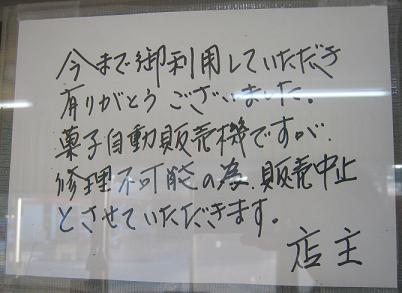 今まで御利用していただき
有りがとうございました。
菓子自動販売機ですが、
修理不可能の為、販売中止
とさせていただきます。
店主